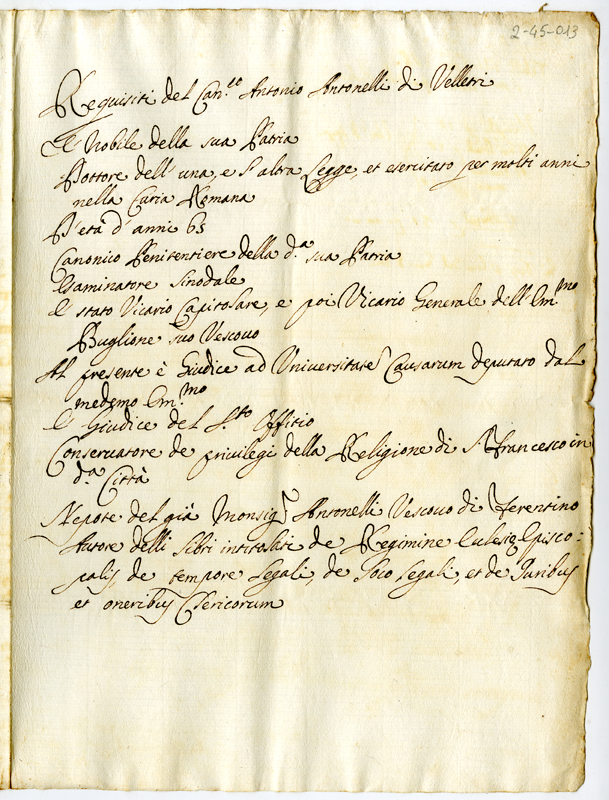 2-45-013
Requisiti del Can.co Antonio Antonelli di Velletri
È Nobile della sua Patria
Dottore dell'una, e l'altra Legge, et esercitato per molti anni
nella Curia Romana
D'età d'anni 65
Canonico Penitentiere della d.a sua Patria
Esaminatore Sinodale
È stato Vicario Capitolare, e poi Vicario Generale dell'Em.mo
Buglione suo Vescovo
Al presente è Giudice ad Universitate Causarum deputato dal
medemo Em.mo
È Giudice del S.to Offitio
Conservatore de privilegi della Religione di S. Francesco in
d.a Città
Nepote del già Monsig.r Antonelli Vescovo di Ferentino
Autore delli libri intitolati de Regimine Eclesię Episco:
palis, de tempore legali, de loco legali, et de Juribus
et oneribus Clericorum